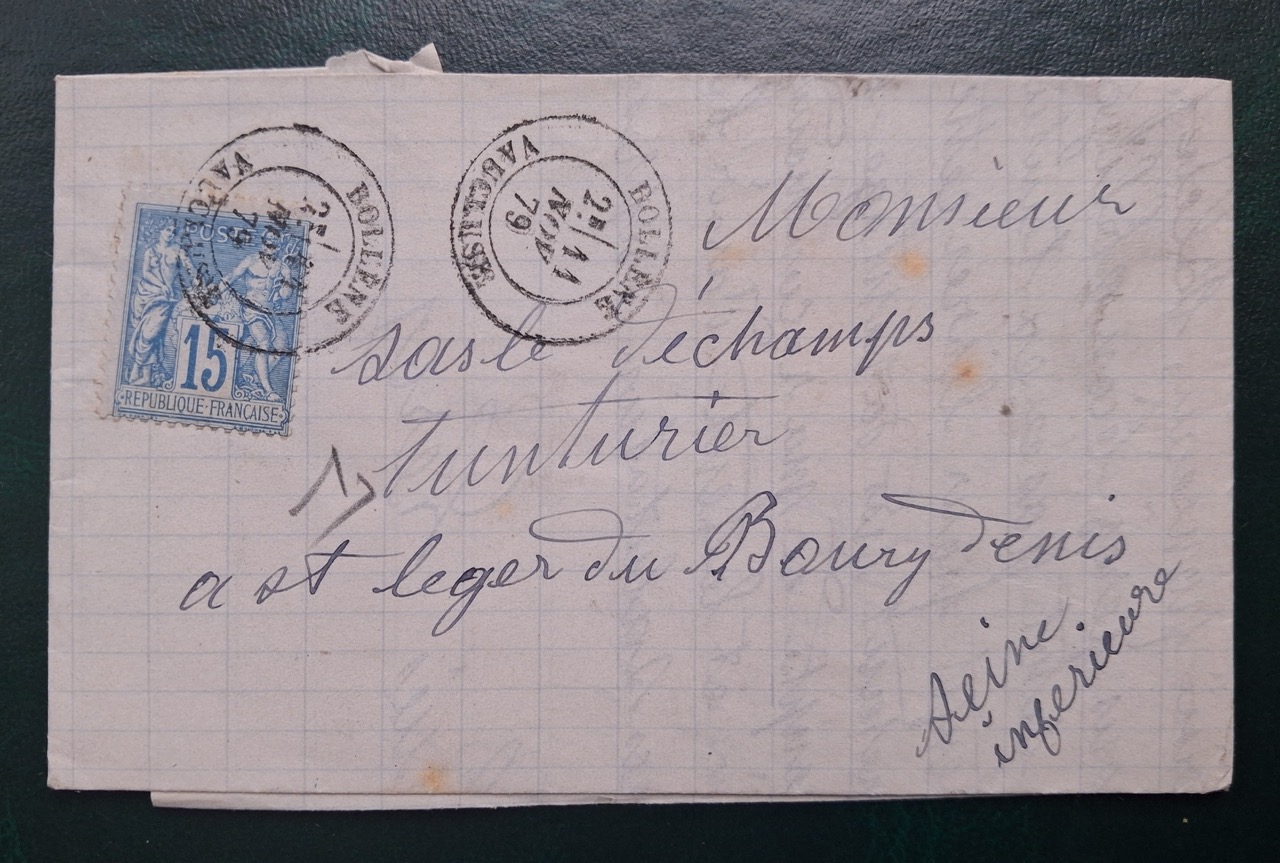 BOLLENE
2E/ 11
NOV
79
VAUCLUSE
BOLLENE
NOV
79
POSTE
15
REPUBLIQUE·FRANÇAISE
Monsieur
sasle déchamps
tunturier
a st leger du Boury denis
seine
inferieure